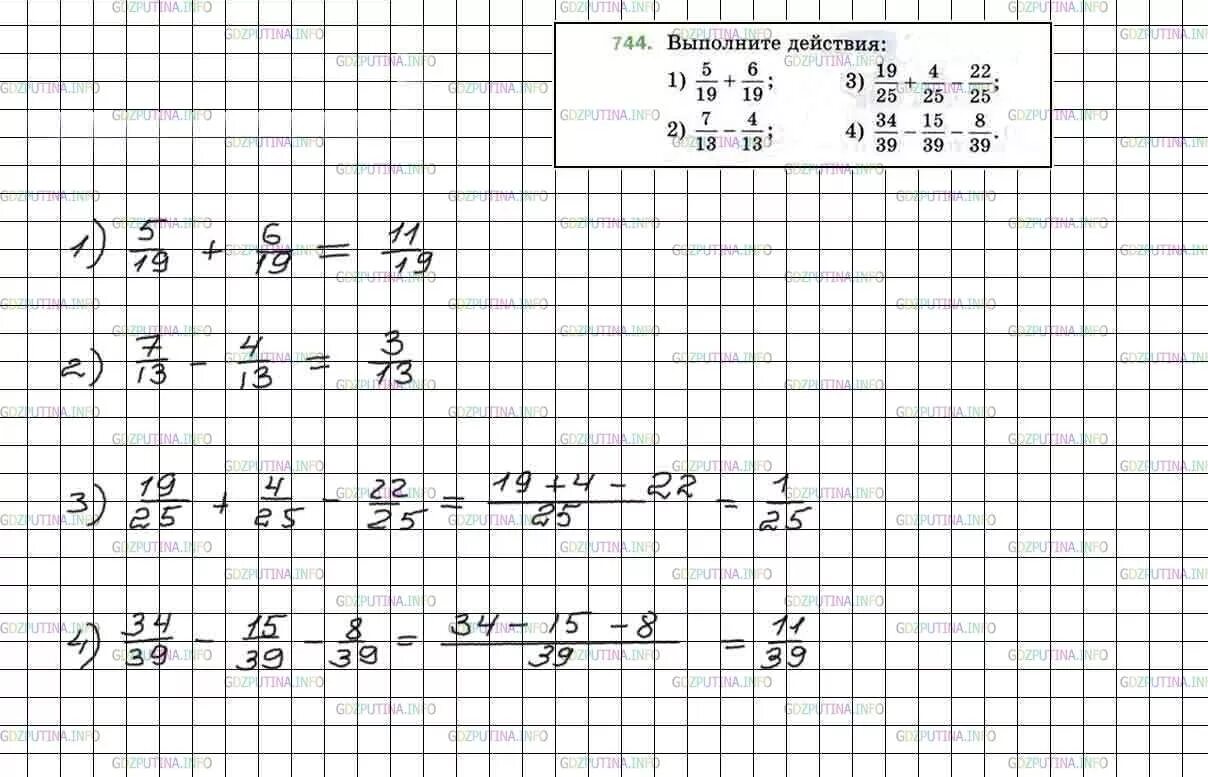 744. Выполните действия:
1) 5/19 + 6/19; 3) 19/25 + 4/25 - 22/25;
2) 7/13 - 4/13; 4) 34/39 - 15/39 - 8/39.
1) 5/19 + 6/19 = 11/19
2) 7/13 - 4/13 = 3/13
3) 19/25 + 4/25 - 22/25 = 19 + 4 - 22/25 = 1/25
4) 34/39 - 15/39 - 8/39 = 34 - 15 - 8/39 = 11/39
GDZPUTINA.INFO